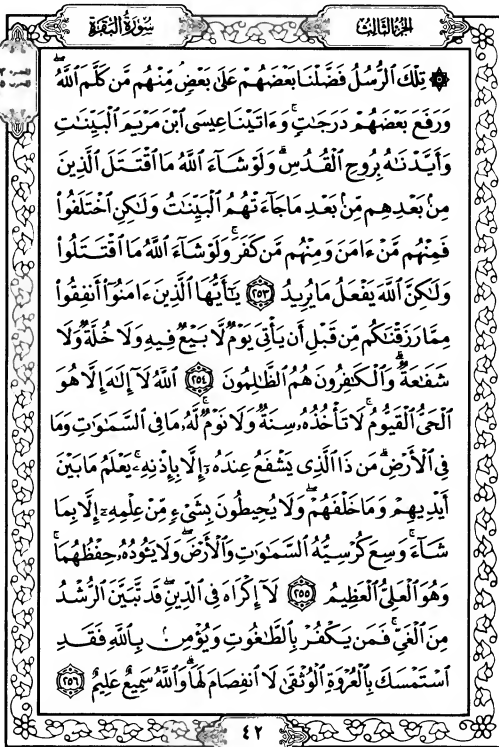 سُورَةُ البَقَرَةِ
الجزء الثالث
۞ تِلْكَ ٱلرُّسُلُ فَضَّلْنَا بَعْضَهُمْ عَلَىٰ بَعْضٍ مِّنْهُم مَّن كَلَّمَ ٱللَّهُ ۖ
وَرَفَعَ بَعْضَهُمْ دَرَجَـٰتٍ ۚ وَءَاتَيْنَا عِيسَى ٱبْنَ مَرْيَمَ ٱلْبَيِّنَـٰتِ
وَأَيَّدْنَـٰهُ بِرُوحِ ٱلْقُدُسِ ۗ وَلَوْ شَآءَ ٱللَّهُ مَا ٱقْتَتَلَ ٱلَّذِينَ
مِنۢ بَعْدِهِم مِّنۢ بَعْدِ مَا جَآءَتْهُمُ ٱلْبَيِّنَـٰتُ وَلَـٰكِنِ ٱخْتَلَفُوا۟
فَمِنْهُم مَّنْ ءَامَنَ وَمِنْهُم مَّن كَفَرَ ۚ وَلَوْ شَآءَ ٱللَّهُ مَا ٱقْتَتَلُوا۟
وَلَـٰكِنَّ ٱللَّهَ يَفْعَلُ مَا يُرِيدُ ٢٥٣ يَـٰٓأَيُّهَا ٱلَّذِينَ ءَامَنُوٓا۟ أَنفِقُوا۟
مِمَّا رَزَقْنَـٰكُم مِّن قَبْلِ أَن يَأْتِىَ يَوْمٌ لَّا بَيْعٌ فِيهِ وَلَا خُلَّةٌ وَلَا
شَفَـٰعَةٌ ۗ وَٱلْكَـٰفِرُونَ هُمُ ٱلظَّـٰلِمُونَ ٢٥٤ ٱللَّهُ لَآ إِلَـٰهَ إِلَّا هُوَ
ٱلْحَىُّ ٱلْقَيُّومُ ۚ لَا تَأْخُذُهُۥ سِنَةٌ وَلَا نَوْمٌ ۚ لَّهُۥ مَا فِى ٱلسَّمَـٰوَٰتِ وَمَا
فِى ٱلْأَرْضِ ۗ مَن ذَا ٱلَّذِى يَشْفَعُ عِندَهُۥٓ إِلَّا بِإِذْنِهِۦ ۚ يَعْلَمُ مَا بَيْنَ
أَيْدِيهِمْ وَمَا خَلْفَهُمْ ۖ وَلَا يُحِيطُونَ بِشَىْءٍ مِّنْ عِلْمِهِۦٓ إِلَّا بِمَا
شَآءَ ۚ وَسِعَ كُرْسِيُّهُ ٱلسَّمَـٰوَٰتِ وَٱلْأَرْضَ ۖ وَلَا يَـُٔودُهُۥ حِفْظُهُمَا ۚ
وَهُوَ ٱلْعَلِىُّ ٱلْعَظِيمُ ٢٥٥ لَآ إِكْرَاهَ فِى ٱلدِّينِ ۖ قَد تَّبَيَّنَ ٱلرُّشْدُ
مِنَ ٱلْغَىِّ ۚ فَمَن يَكْفُرْ بِٱلطَّـٰغُوتِ وَيُؤْمِنۢ بِٱللَّهِ فَقَدِ
ٱسْتَمْسَكَ بِٱلْعُرْوَةِ ٱلْوُثْقَىٰ لَا ٱنفِصَامَ لَهَا ۗ وَٱللَّهُ سَمِيعٌ عَلِيمٌ ٢٥٦
٤٢